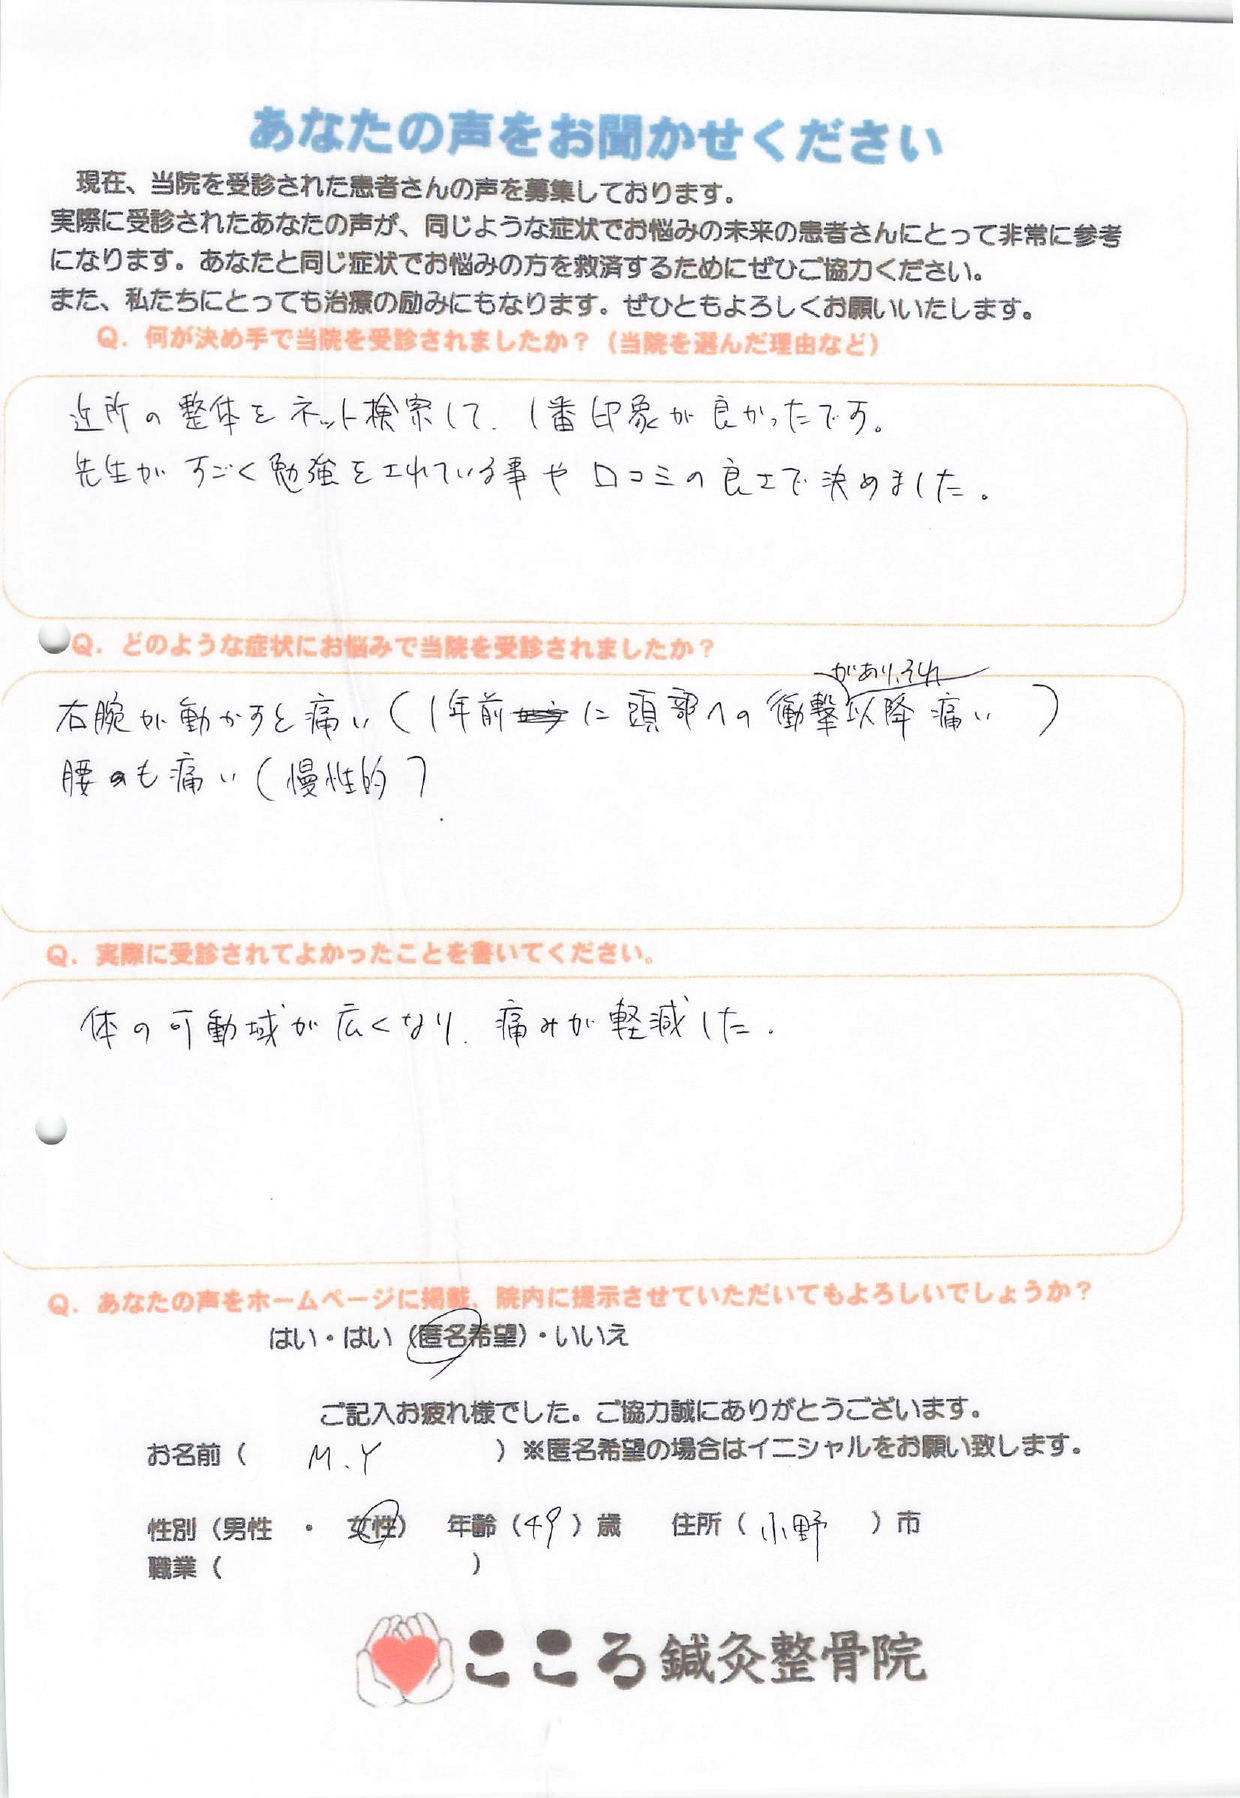 あなたの声をお聞かせください
現在、当院を受診された患者さんの声を募集しております。
実際に受診されたあなたの声が、同じような症状でお悩みの未来の患者さんにとって非常に参考
になります。あなたと同じ症状でお悩みの方を救済するためにぜひご協力ください。
また、私たちにとっても治療の励みにもなります。ぜひともよろしくお願いいたします。
Q. 何が決め手で当院を受診されましたか？（当院を選んだ理由など）
近所の整体をネット検索して、1番印象が良かったです。
先生がすごく勉強をされている事や口コミの良さで決めました。
Q. どのような症状にお悩みで当院を受診されましたか？
があり、それ
右腕が動かすと痛い（1年前に頭部への衝撃以降痛い）
腰も痛い（慢性的）
Q. 実際に受診されてよかったことを書いてください。
体の可動域が広くなり、痛みが軽減した。
Q. あなたの声をホームページに掲載、院内に提示させていただいてもよろしいでしょうか？
はい・はい（匿名希望）・いいえ
ご記入お疲れ様でした。ご協力誠にありがとうございます。
お名前（ M.Y ）※匿名希望の場合はイニシャルをお願い致します。
性別（男性 ・ 女性） 年齢（49）歳 住所（ 小野 ）市
職業（ ）
こころ鍼灸整骨院